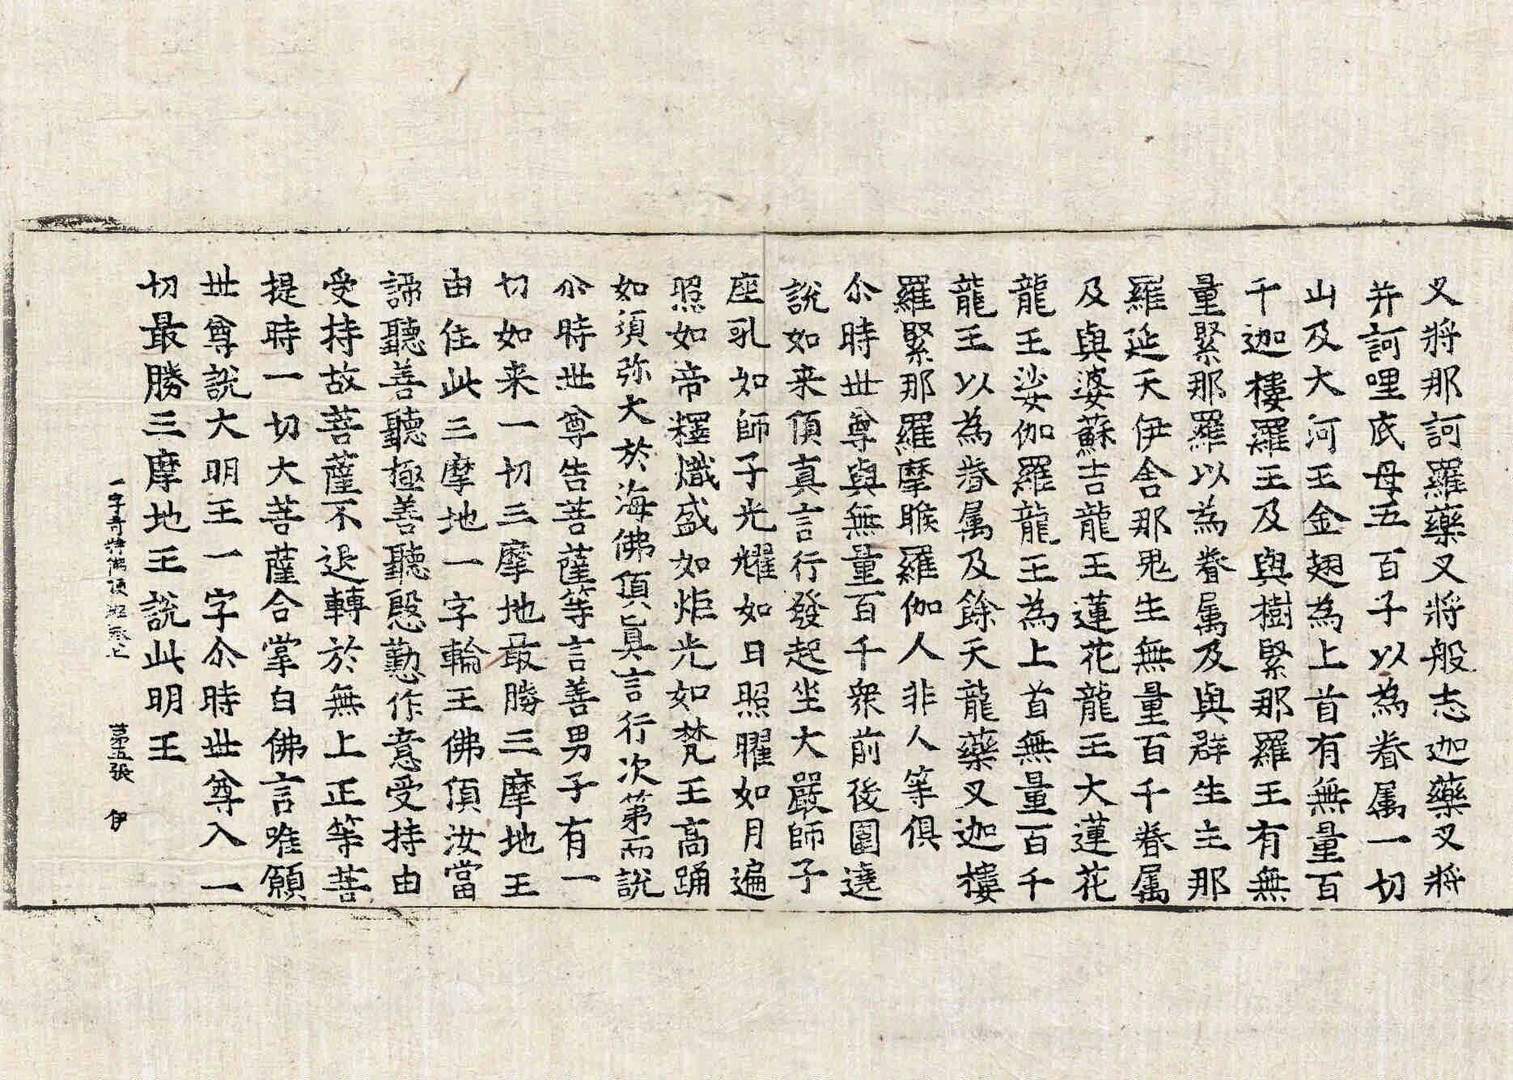 叉將那訶羅藥叉將般志迦藥叉將
并訶哩底母五百子以為眷属一切
山及大河王金翅為上首有無量百
千迦樓羅王及與樹緊那羅王有無
量緊那羅以為眷属及與群生主那
羅延天伊舍那鬼生無量百千眷属
及與婆蘇吉龍王蓮花龍王大蓮花
龍王娑伽羅龍王為上首無量百千
龍王以為眷属及餘天龍藥叉迦樓
羅緊那羅摩睺羅伽人非人等俱
尒時世尊與無量百千衆前後圍遶
說如来頂真言行發起坐大嚴師子
座乳如師子光耀如日照曜如月遍
照如帝釋熾盛如炬光如梵王高踊
如須弥大於海佛頂真言行次第而說
尒時世尊告菩薩等言善男子有一
切如来一切三摩地最勝三摩地王
由住此三摩地一字輪王佛頂汝當
諦聽善聽極善聽慇懃作意受持由
受持故菩薩不退轉於無上正等菩
提時一切大菩薩合掌白佛言唯願
世尊說大明王一字尒時世尊入一
切最勝三摩地王說此明王
一字奇特佛頂經卷上 第五張 伊